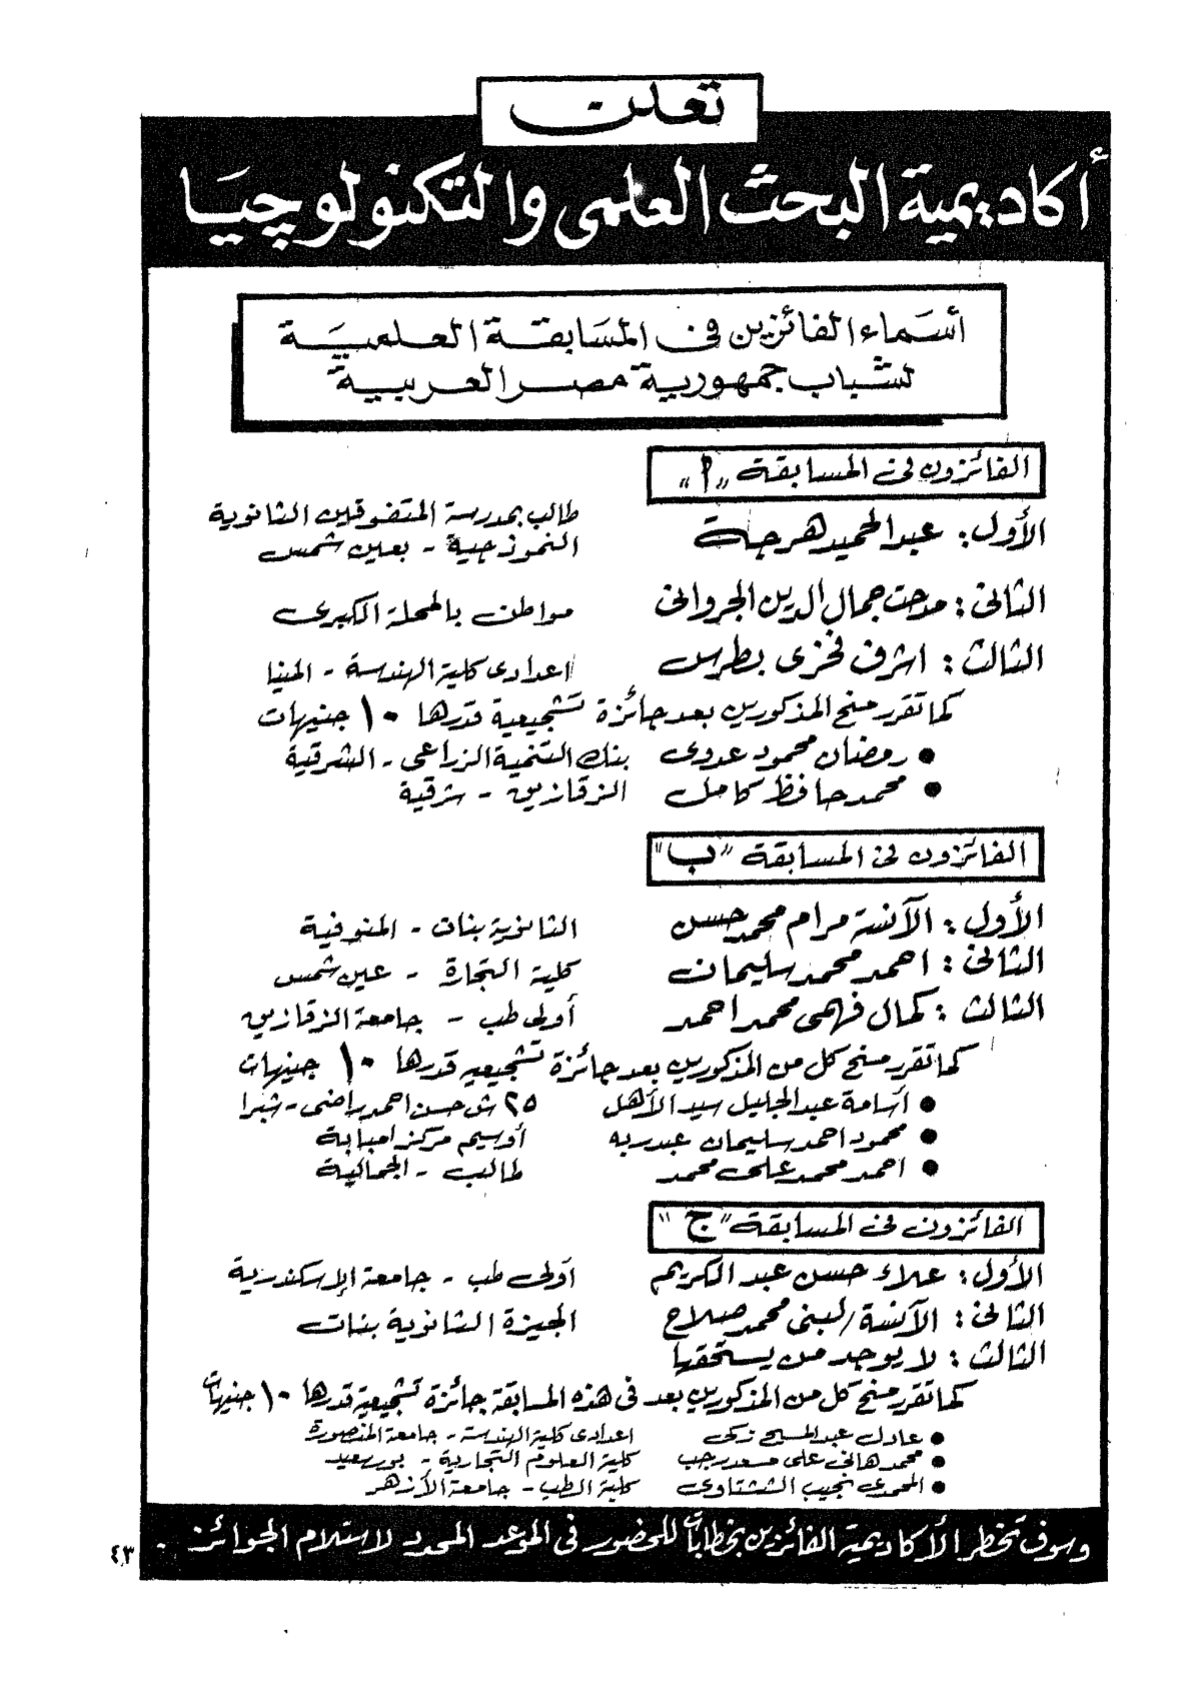 تعلن
أكاديمية البحث العلمى والتكنولوجيا
أسماء الفائزين فى المسابقة العلمية
لشباب جمهورية مصر العربية
الفائزون فى المسابقة "أ"
الأول: عبدالحميد هرجة طالب بمدرسة المتفوقين الثانوية
النموذجية - بعين شمس
الثانى: مدحت جمال الدين الجروانى مواطن بالمحلة الكبرى
الثالث: اشرف فخرى بطرس اعدادى كلية الهندسة - المنيا
كما تقرر منح المذكورين بعد جائزة تشجيعية قدرها ١٠ جنيهات
● رمضان محمود عدوى بنك التنمية الزراعى - الشرقية
● محمد حافظ كامل الزقازيق - شرقية
الفائزون فى المسابقة "ب"
الأول: الآنسة مرام محمد حسن الثانوية بنات - المنوفية
الثانى: احمد محمد سليمان كلية التجارة - عين شمس
الثالث: كمال فهمى محمد احمد أولى طب - جامعة الزقازيق
كما تقرر منح كل من المذكورين بعد جائزة تشجيعية قدرها ١٠ جنيهات
● أسامة عبدالجليل سيد الأهل ٢٥ ش حسن احمد راضى - شبرا
● محمود احمد سليمان عبدربه أوسيم مركز امبابة
● احمد محمد على محمد طالب - الجمالية
الفائزون فى المسابقة "ج"
الأول: علاء حسن عبد الكريم أولى طب - جامعة الإسكندرية
الثانى: الآنسة/لبنى محمد صلاح الجيزة الثانوية بنات
الثالث: لا يوجد من يستحقها
كما تقرر منح كل من المذكورين بعد فى هذه المسابقة جائزة تشجيعية قدرها ١٠ جنيهات
● عادل عبدالمسيح زكى اعدادى كلية الهندسة - جامعة المنصورة
● محمد هانى على مسعد رجب كلية العلوم التجارية - بورسعيد
● المحمدى نجيب الششتاوى كلية الطب - جامعة الأزهر
وسوف تخطر الأكاديمية الفائزين بخطابات للحضور فى الموعد المحدد لاستلام الجوائز .
٤٣